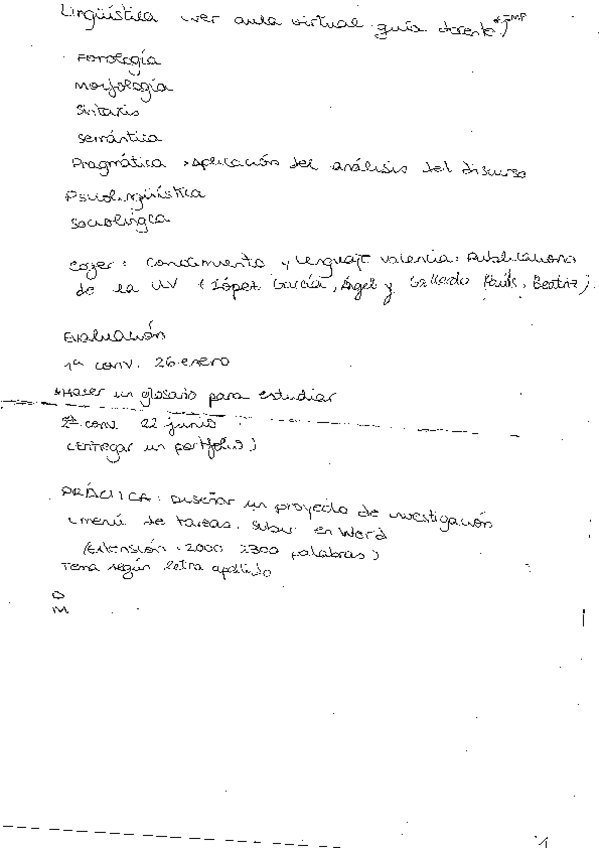 Lingüística (ver aula virtual guía docente) *IMP
Fonología
Morfología
Sintaxis
Semántica
Pragmática → Aplicación del análisis del discurso
Psicolingüística
Sociolingca
Coger: Conocimiento y lenguaje Valencia: Publicacions
de la UV (López García, Ángel y Gallardo Paúls, Beatriz).
Evaluación
1ª conv. 26 enero
*Hacer un glosario para estudiar
2ª conv. 22 junio
(entregar un portfolio)
PRÁCTICA: Diseñar un proyecto de investigación
(menú de tareas. Subir en Word
(Extensión: 2000 2300 palabras)
Tema según letra apellido
O
M
1